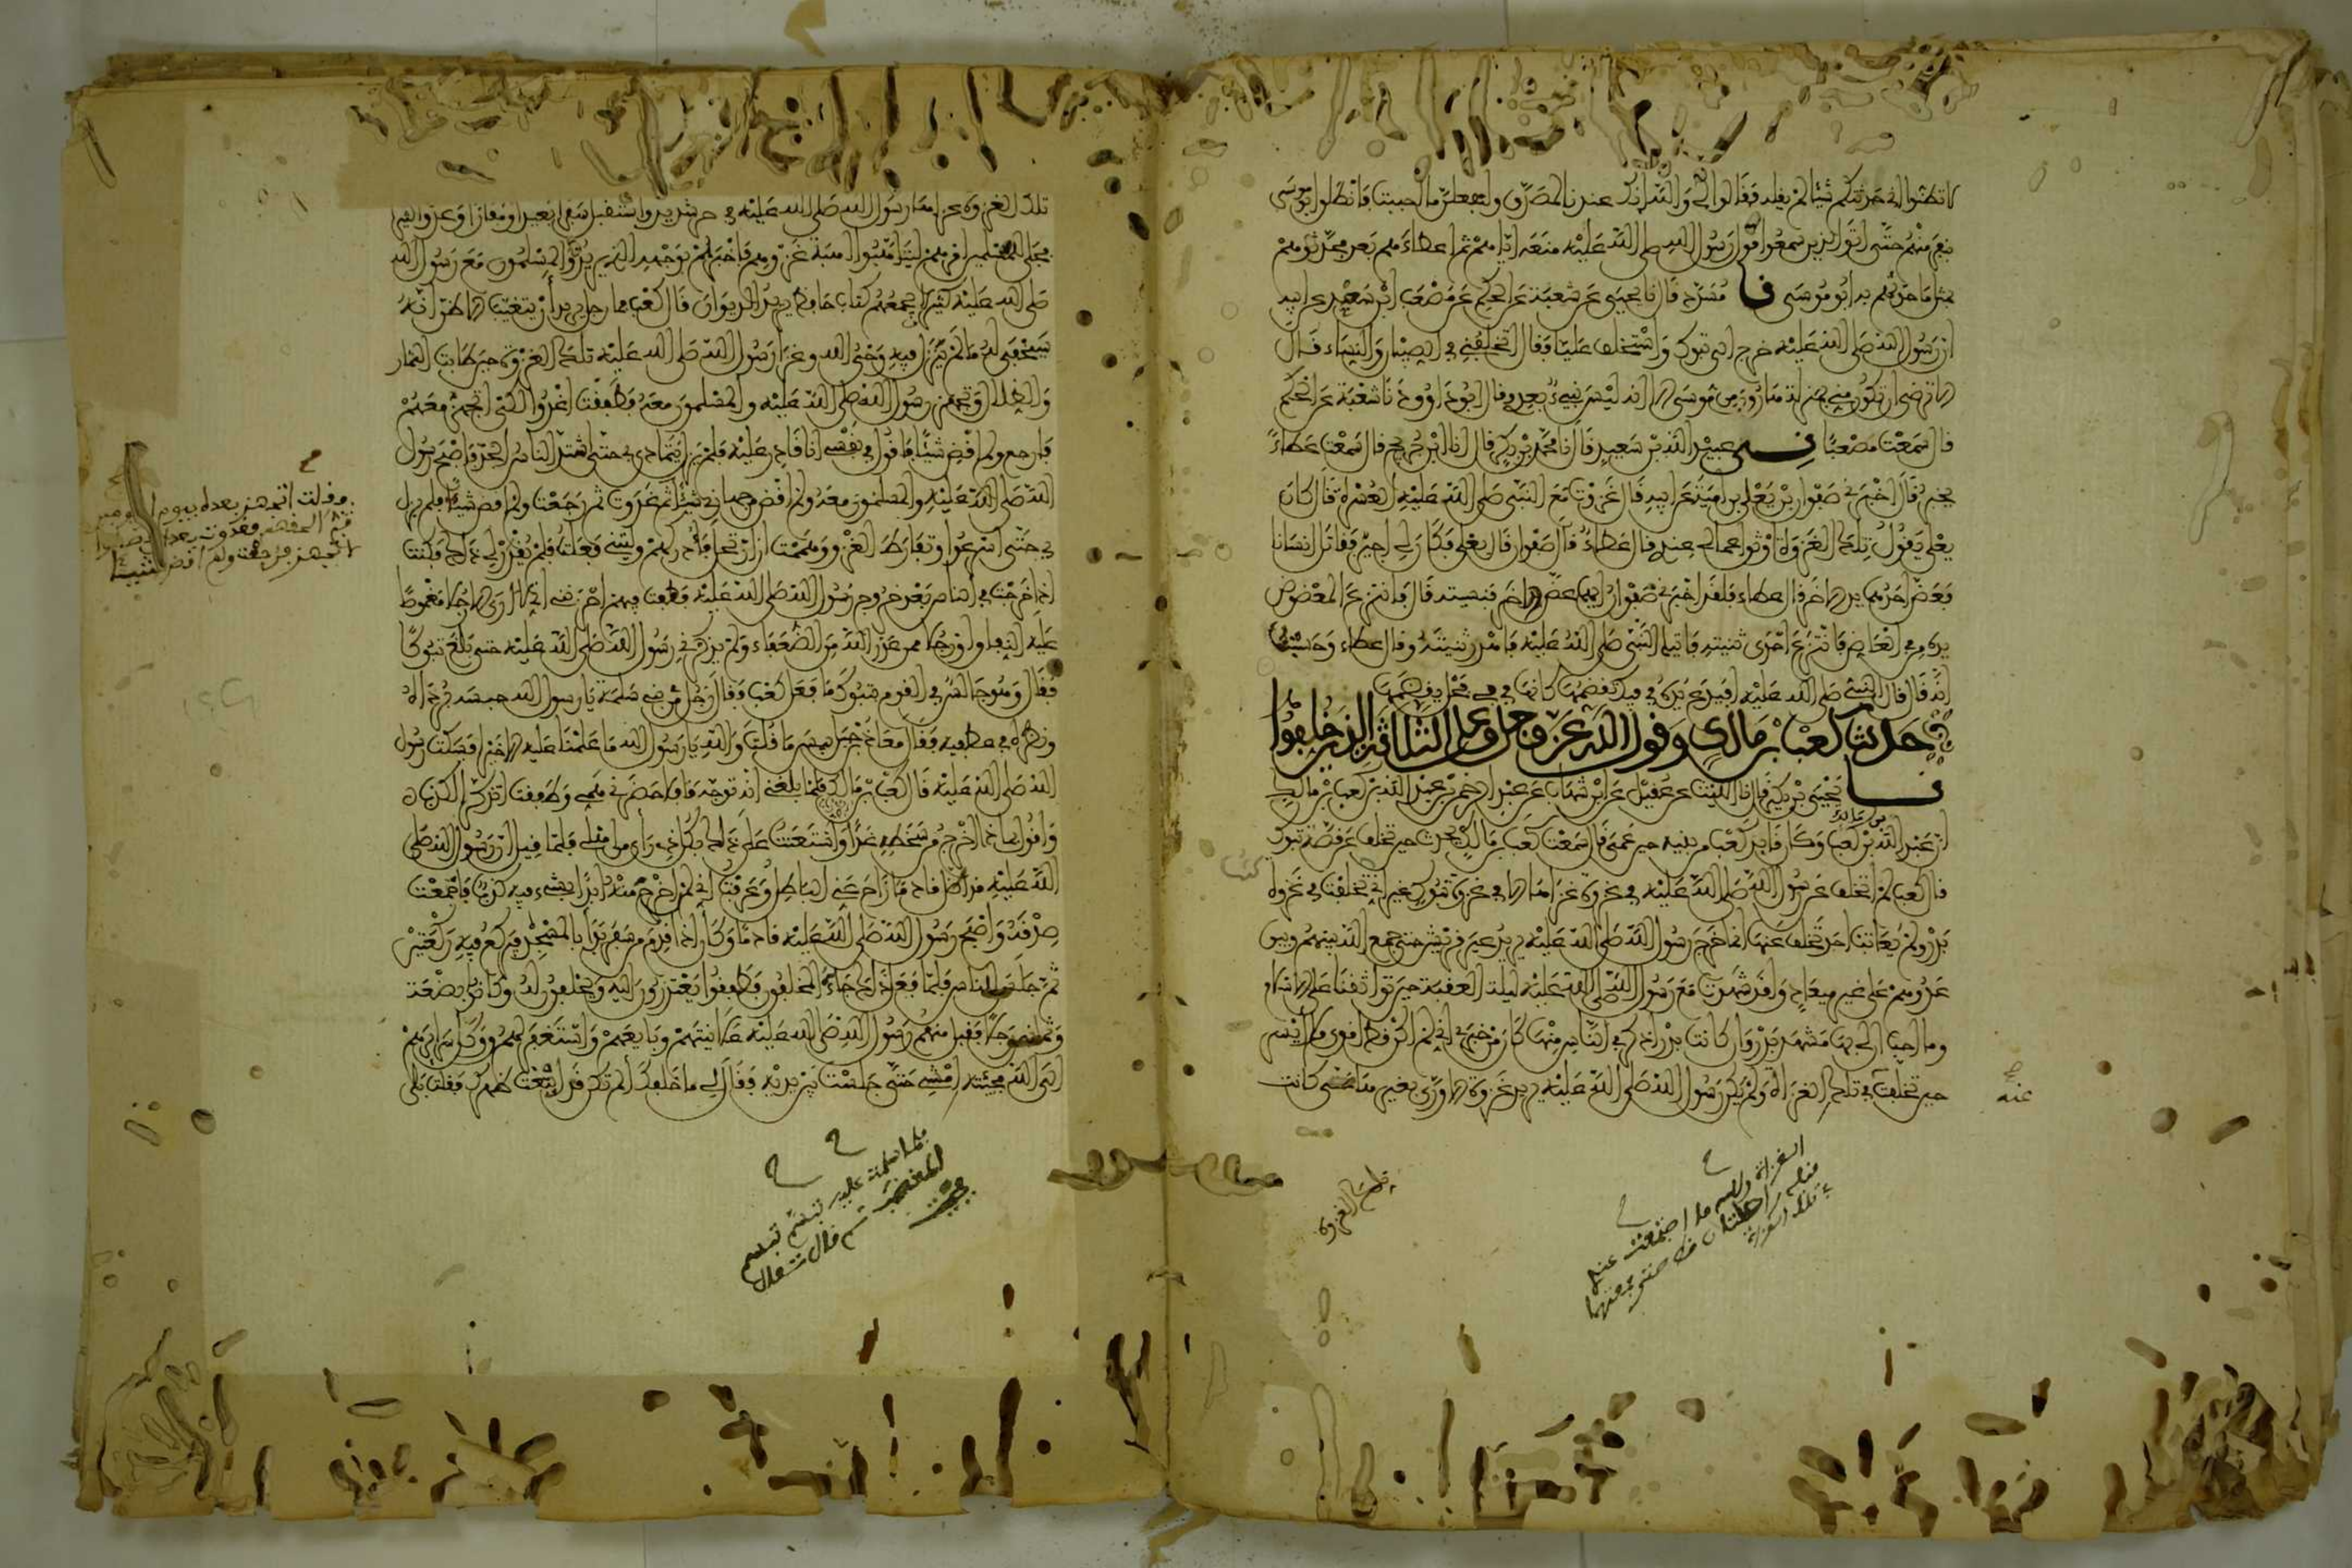 لا تظنوا اني حدثتكم شيئا لم يقله فقالوا لي والله انك عندنا لمصدق ولنفعلن ما احببت فانطلق ابو موسى
بنفر منهم حتى اتوا الذين سمعوا قول رسول الله صلى الله عليه منعه اياهم ثم اعطاءهم بعد فحدثوهم
بمثل ما حدثهم به ابو موسى نا مسدد قال نا يحيى عن شعبة عن الحكم عن مصعب ابن سعد عن ابيه
ان رسول الله صلى الله عليه خرج الى تبوك واستخلف عليا فقال اتخلفني في الصبيان والنساء قال
الا ترضى ان تكون مني بمنزلة هارون من موسى الا انه ليس نبيء بعدي وقال ابو داوود نا شعبة عن الحكم
قال سمعت مصعبا نا عبيد الله بن سعيد قال نا محمد بن بكر قال انا ابن جريج قال سمعت عطاء
يخبر قال اخبرني صفوان بن يعلى بن امية عن ابيه قال غزوت مع النبي صلى الله عليه العسرة قال كان
يعلى يقول تلك الغزوة اوثق اعمالي عندي قال عطاء قال صفوان قال يعلى فكان لي اجير فقاتل انسانا
فعض احدهما يد الاخر قال عطاء فلقد اخبرني صفوان ايهما عض الاخر فنسيته قال فانتزع المعضوض
يده من في العاض فانتزع احدى ثنيتيه فاتيا النبي صلى الله عليه فاهدر ثنيته وقال عطاء وحسبت
انه قال قال النبي صلى الله عليه افيدع يده في فيك تقضمها كانها في في فحل يقضمها
حديث كعب بن مالك وقول الله عز وجل وعلى الثلاثة الذين خلفوا
نا يحيى بن بكير قال نا الليث عن عقيل عن ابن شهاب عن عبد الرحمن بن عبد الله بن كعب بن مالك
ان عبد الله بن كعب بن مالك وكان قايد كعب من بنيه حين عمي قال سمعت كعب بن مالك يحدث حين تخلف عن قصة تبوك
قال كعب لم اتخلف عن رسول الله صلى الله عليه في غزوة غزاها الا في غزوة تبوك غير اني تخلفت في غزوة
بدر ولم يعاتب احد تخلف عنها انما خرج رسول الله صلى الله عليه يريد عير قريش حتى جمع الله بينهم وبين
عدوهم على غير ميعاد ولقد شهدت مع رسول الله صلى الله عليه ليلة العقبة حين تواثقنا على الاسلام
وما احب ان لي بها مشهد بدر وان كانت بدر اذكر في الناس منها كان من خبري اني لم اكن قط اقوى ولا ايسر
حين تخلفت في تلك الغزاة ولم يكن رسول الله صلى الله عليه يريد غزوة الا ورى بغيرها حتى كانت
عنه
تلك الغزوة
تلك الغزوة غزاها رسول الله صلى الله عليه في حر شديد واستقبل سفرا بعيدا ومفازا وعدوا كثيرا
فجلى للمسلمين امرهم ليتاهبوا اهبة غزوهم فاخبرهم بوجهه الذي يريد والمسلمون مع رسول الله
صلى الله عليه كثير لا يجمعهم كتاب حافظ يريد الديوان قال كعب فما رجل يريد أن يتغيب الا ظن انه
سيخفى له ما لم ينزل فيه وحي الله وغزا رسول الله صلى الله عليه تلك الغزوة حين طابت الثمار
والظلال وتجهز رسول الله صلى الله عليه والمسلمون معه فطفقت اغدوا لكي اتجهز معهم
فارجع ولم اقض شيئا فاقول في نفسي انا قادر عليه فلم يزل يتمادى بي حتى اشتد الناس الجد فاصبح رسول
الله صلى الله عليه والمسلمون معه ولم اقض من جهازي شيئا ثم غدوت ثم رجعت ولم اقض شيئا فلم يزل
بي حتى اسرعوا وتفارط الغزو وهممت ان ارتحل فأدركهم وليتني فعلت فلم يقدر لي ذلك فكنت
اذا خرجت في الناس بعد خروج رسول الله صلى الله عليه فطفت فيهم احزنني اني لا ارى الا رجلا مغموصا
عليه النفاق او رجلا ممن عذر الله من الضعفاء ولم يذكرني رسول الله صلى الله عليه حتى بلغ تبوكا
فقال وهو جالس في القوم بتبوك ما فعل كعب فقال رجل من بني سلمة يا رسول الله حبسه برداه
ونظره في عطفيه فقال معاذ بن جبل بيس ما قلت والله يا رسول الله ما علمنا عليه الا خيرا فسكت رسول
الله صلى الله عليه قال كعب بن مالك فلما بلغني انه توجه قافلا حضرني همي وطفقت اتذكر الكذب
واقول بماذا اخرج من سخطه غدا واستعنت على ذلك بكل ذي رأي من اهلي فلما قيل ان رسول الله صلى
الله عليه قد اظل قادما زاح عني الباطل وعرفت اني لن اخرج منه ابدا بشيء فيه كذب فاجمعت
صدقه واصبح رسول الله صلى الله عليه قادما وكان اذا قدم من سفر بدأ بالمسجد فيركع فيه ركعتين
ثم جلس للناس فلما فعل ذلك جاءه المخلفون فطفقوا يعتذرون اليه ويحلفون له وكانوا بضعة
وثمانين رجلا فقبل منهم رسول الله صلى الله عليه علانيتهم وبايعهم واستغفر لهم ووكل سرايرهم
الى الله فجئته امشي حتى جلست بين يديه فقال لي ما خلفك ألم تكن قد ابتعت ظهرك فقلت بلى
وقلت اتجهز بعده بيوم او يومين
ثم الحقهم فغدوت بعد ان فصلوا
لاتجهز فرجعت ولم اقض شيئا
فلما سلمت عليه تبسم تبسم
المغضب ثم قال تعال